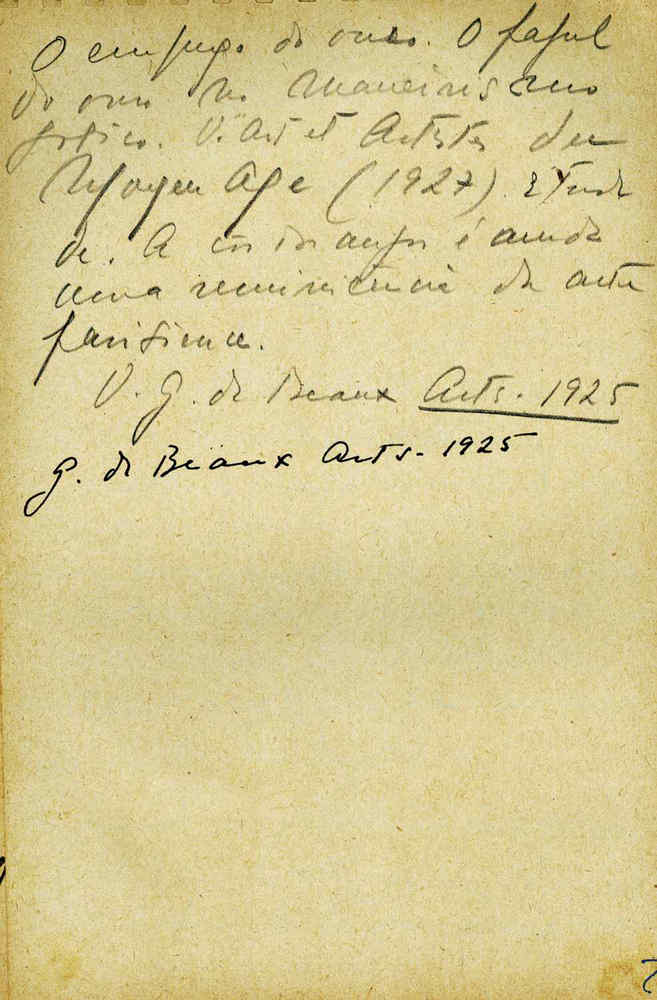 O emprego do ouro. O papel
do ouro no Maneirismo
gotico. V. Art et Artistes du
Moyen Age (1927). Etude
de. A é ainda
uma reminiscencia da arte
parisiense.
V. G. de Beaux Arts. 1925
G. de Beaux Arts. 1925